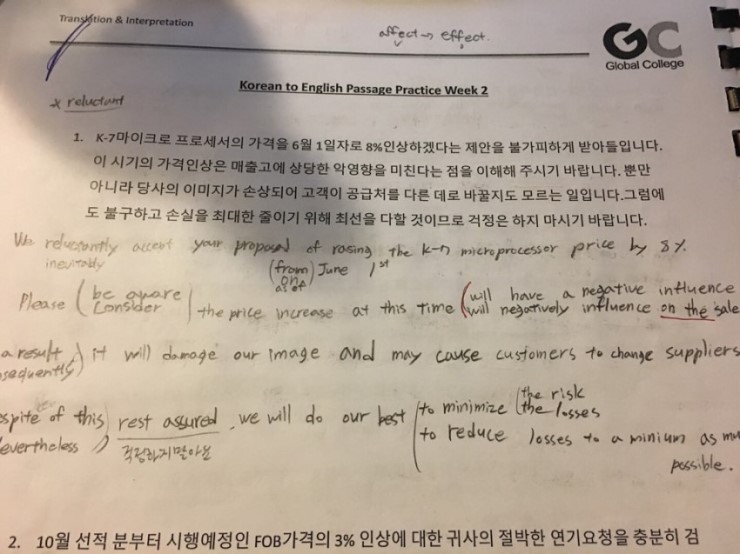 Translation & Interpretation
affect → effect.
GC
Global College
Korean to English Passage Practice Week 2
* reluctant
1. K-7마이크로 프로세서의 가격을 6월 1일자로 8%인상하겠다는 제안을 불가피하게 받아들입니다.
이 시기의 가격인상은 매출고에 상당한 악영향을 미친다는 점을 이해해 주시기 바랍니다. 뿐만
아니라 당사의 이미지가 손상되어 고객이 공급처를 다른 데로 바꿀지도 모르는 일입니다.그럼에
도 불구하고 손실을 최대한 줄이기 위해 최선을 다할 것이므로 걱정은 하지 마시기 바랍니다.
We reluctantly accept your proposal of rasing the K-7 microprocessor price by 8%.
inevitably (from) June 1st
on
as of
Please (be aware the price increase at this time (will have a negative influence
consider will negatively influence on the sale
a result, it will damage our image and may cause customers to change suppliers
sequently)
spite of this rest assured, we will do our best to minimize (the risk
evertheless ) 걱정하지말아요 the losses
to reduce losses to a minium as mu
possible.
2. 10월 선적 분부터 시행예정인 FOB가격의 3% 인상에 대한 귀사의 절박한 연기요청을 충분히 검